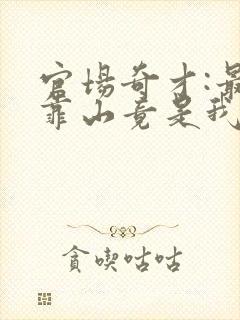 官场奇才:最
靠山竟是我
贪喫咕咕